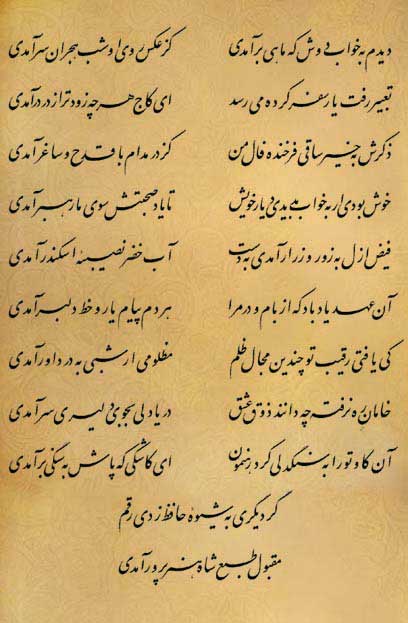 دیدم به خواب دوش که ماهی برآمدی کز عکس روی او شب هجران سرآمدی
تعبیر رفت یار سفر کرده می رسد ای کاج هر چه زودتر از در درآمدی
ذکرش به خیر ساقی فرخنده فال من کز در مدام با قدح و ساغر آمدی
خوش بودی ار به خواب بدیدی دیار خویش تا یاد صحبتش سوی ما رهبر آمدی
فیض ازل به زور و زر ار آمدی به دست آب خضر نصیبهٔ اسکندر آمدی
آن عهد یاد باد که از بام و در مرا هر دم پیام یار و خط دلبر آمدی
کی یافتی رقیب تو چندین مجال ظلم مظلومی ار شبی به در داور آمدی
خامان ره نرفته چه دانند ذوق عشق دریادلی بجوی دلیری سرآمدی
آن کاو تو را به سنگدلی کرد رهنمون ای کاشکی که پاش به سنگی برآمدی
گر دیگری به شیوهٔ حافظ زدی رقم
مقبول طبع شاه هنرپرور آمدی